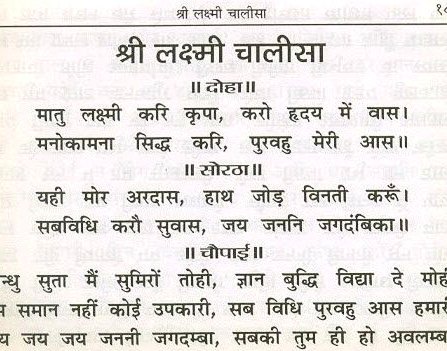 श्री लक्ष्मी चालीसा
श्री लक्ष्मी चालीसा
॥दोहा॥
मातु लक्ष्मी करि कृपा, करो हृदय में वास।
मनोकामना सिद्ध करि, पुरवहु मेरी आस॥
॥सोरठा॥
यही मोर अरदास, हाथ जोड़ विनती करूँ।
सबविधि करौ सुवास, जय जननि जगदंबिका॥
॥चौपाई॥
न्धु सुता मैं सुमिरों तोही, ज्ञान बुद्धि विद्या दे मोही
समान नहीं कोई उपकारी, सब विधि पुरवहु आस हमारी
जय जय जननी जगदम्बा, सबकी तुम ही हो अवलम्ब